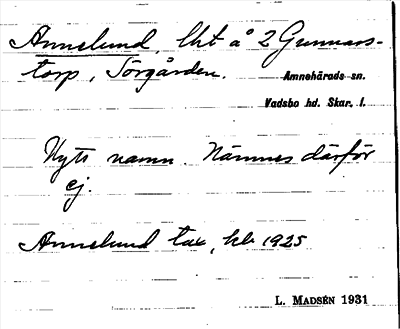 Annelund, lht å 2 Gunnars-
torp, Sörgården. Amnehärads sn.
Vadsbo hd. Skar. l.
Nytt namn. Nämnes därför
ej.
Annelund tax, kb 1925
L. MADSÉN 1931